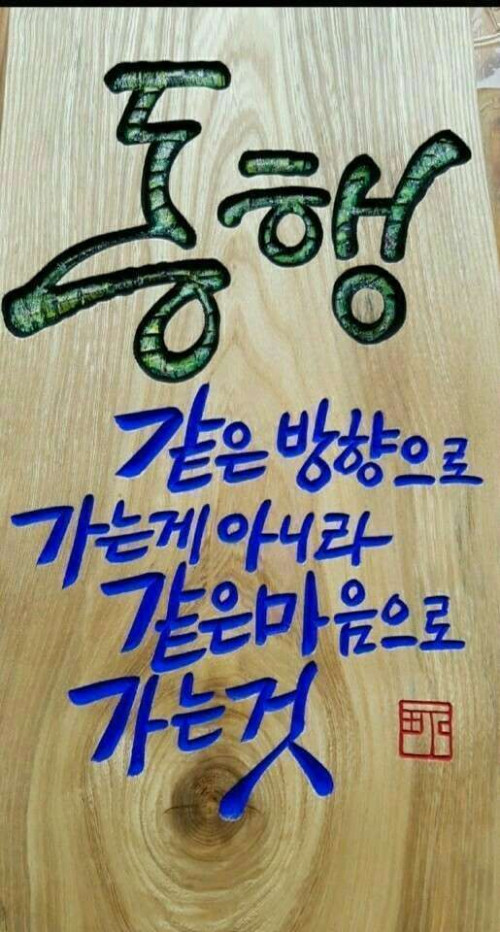 동행
같은 방향으로
가는게 아니라
같은마음으로
가는것